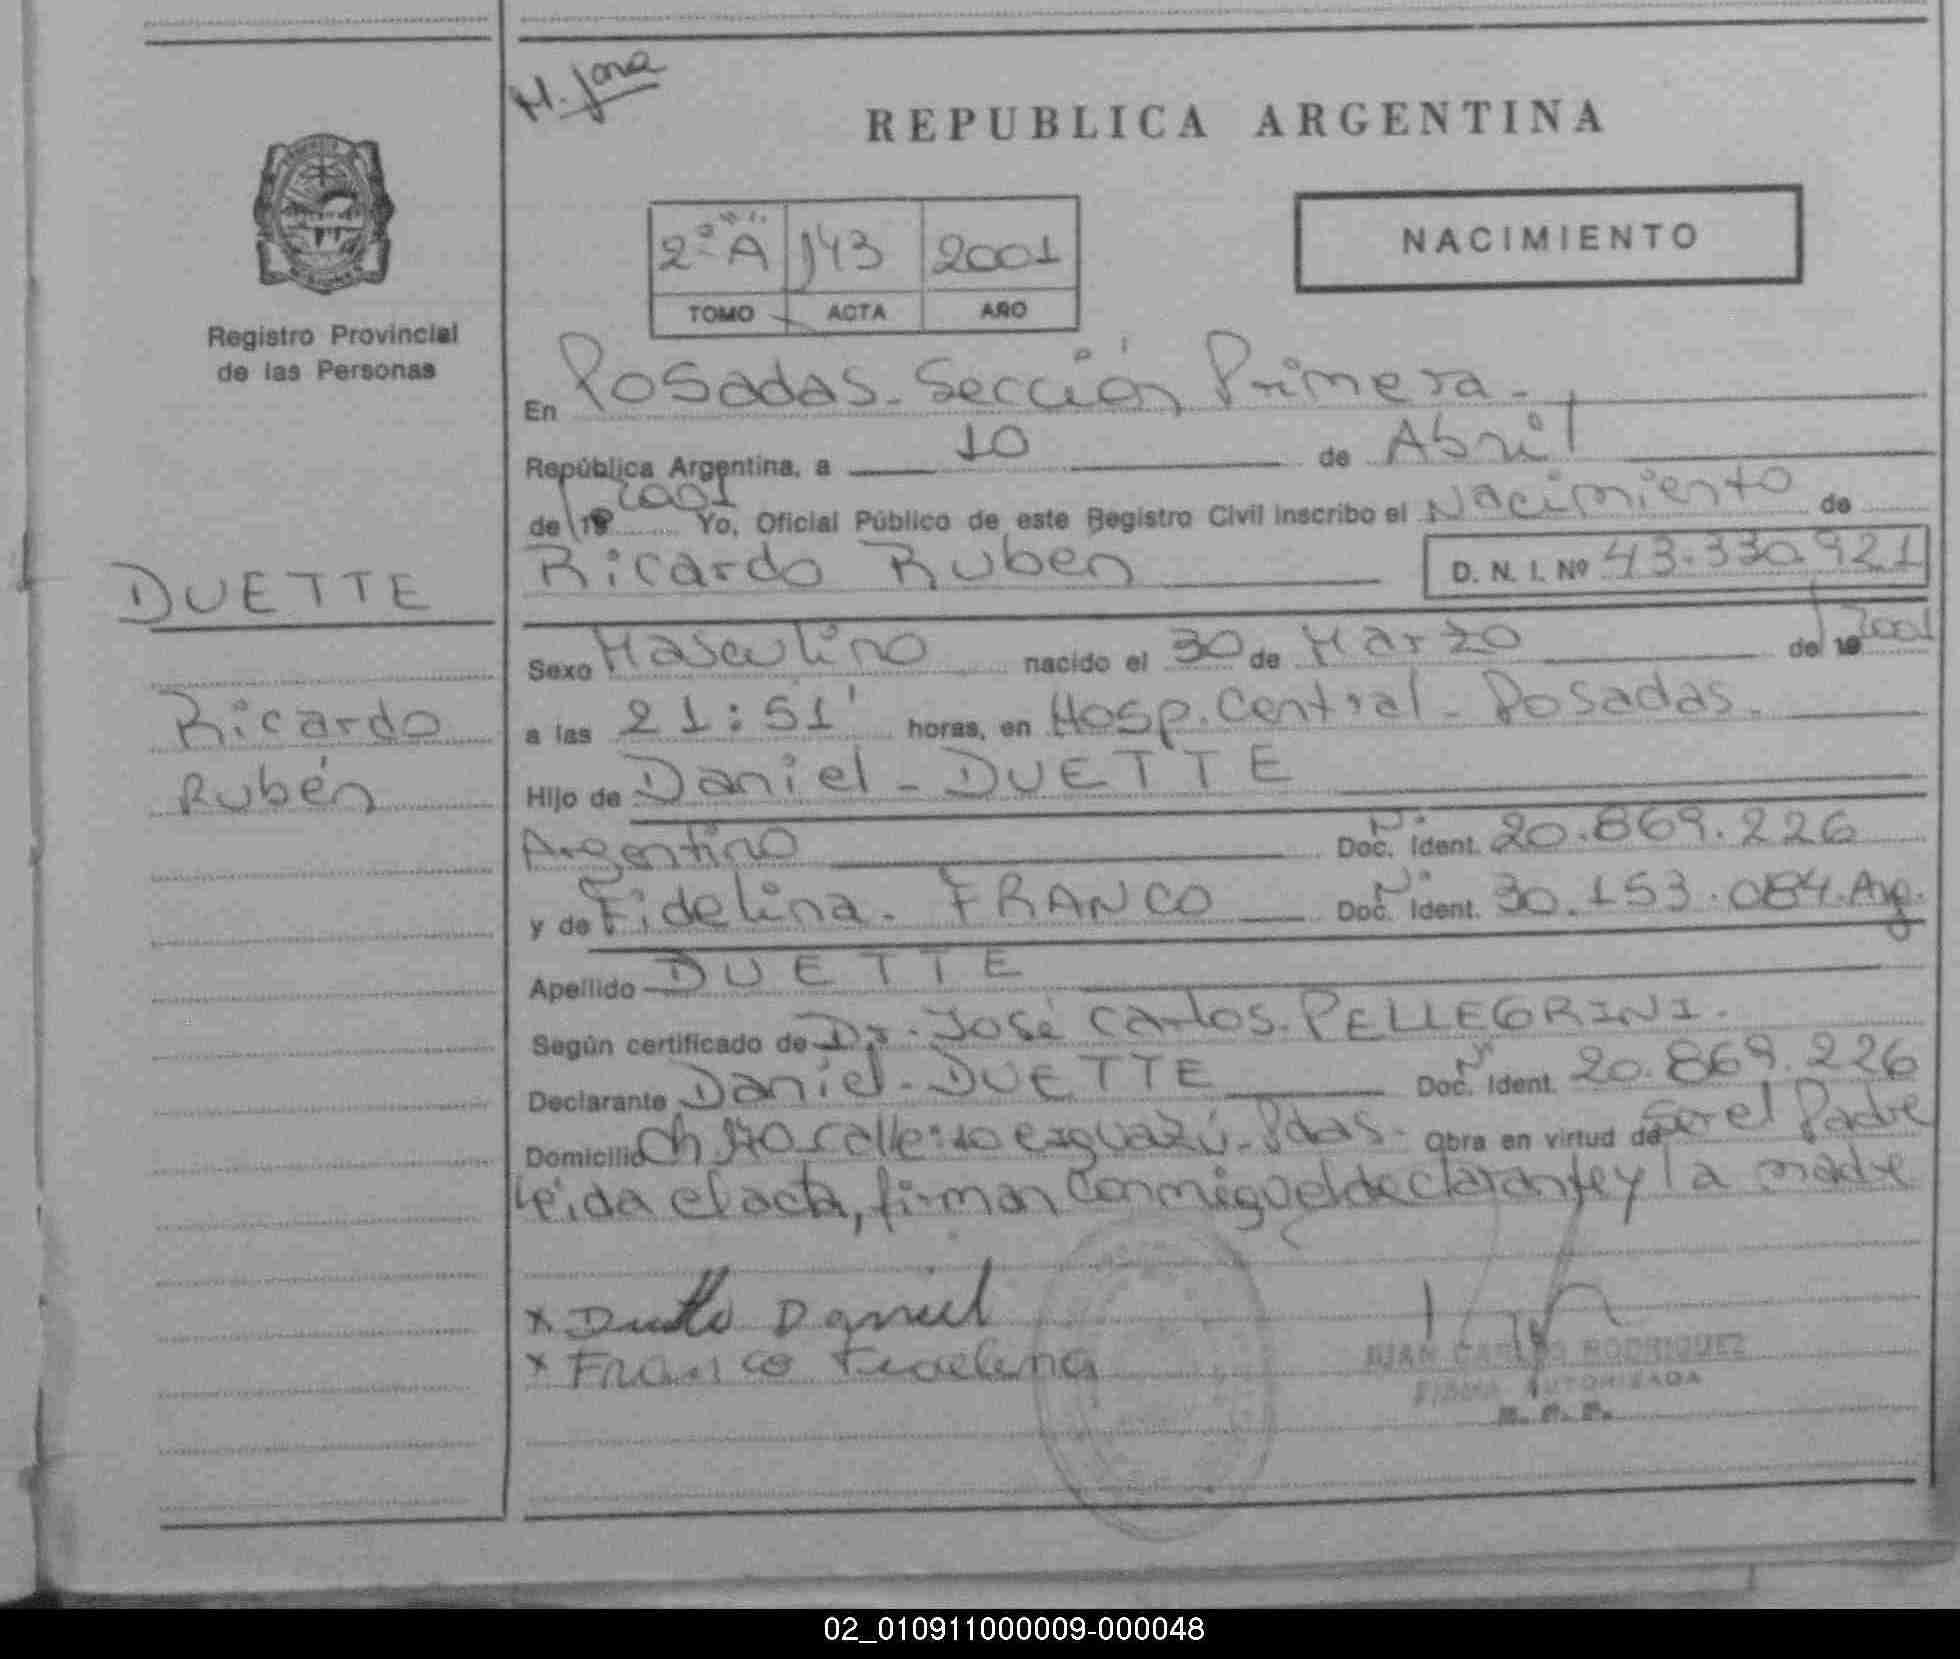 M. Jana
REPUBLICA ARGENTINA
NACIMIENTO
2º A 143 2001
TOMO ACTA AÑO
Registro Provincial
de las Personas
En Posadas - Sección Primera -
República Argentina, a 10 de Abril
de 19 2001 Yo, Oficial Público de este Registro Civil inscribo el Nacimiento de
Ricardo Ruben D. N. I. Nº 43.330.921
DUETTE
Ricardo
Rubén
Sexo Masculino nacido el 30 de Marzo de 19 2001
a las 21:51' horas, en Hosp. Central - Posadas -
Hijo de Daniel - DUETTE
Argentino Doc. Ident. 20.869.226
y de Fidelina - FRANCO Doc. Ident. 30.153.084. Arg.
Apellido DUETTE
Según certificado de Dr. José Carlos PELLEGRINI.
Declarante Daniel - DUETTE Doc. Ident. 20.869.226
Domicilio Ch calle: Pdas. Obra en virtud de Ser el Padre
Leida el acta, firman conmigo el declarante y la madre
x Duette Daniel
x Franco Fidelina
JUAN CARLOS RODRIGUEZ
FIRMA AUTORIZADA
R. P. P.
02_010911000009-000048